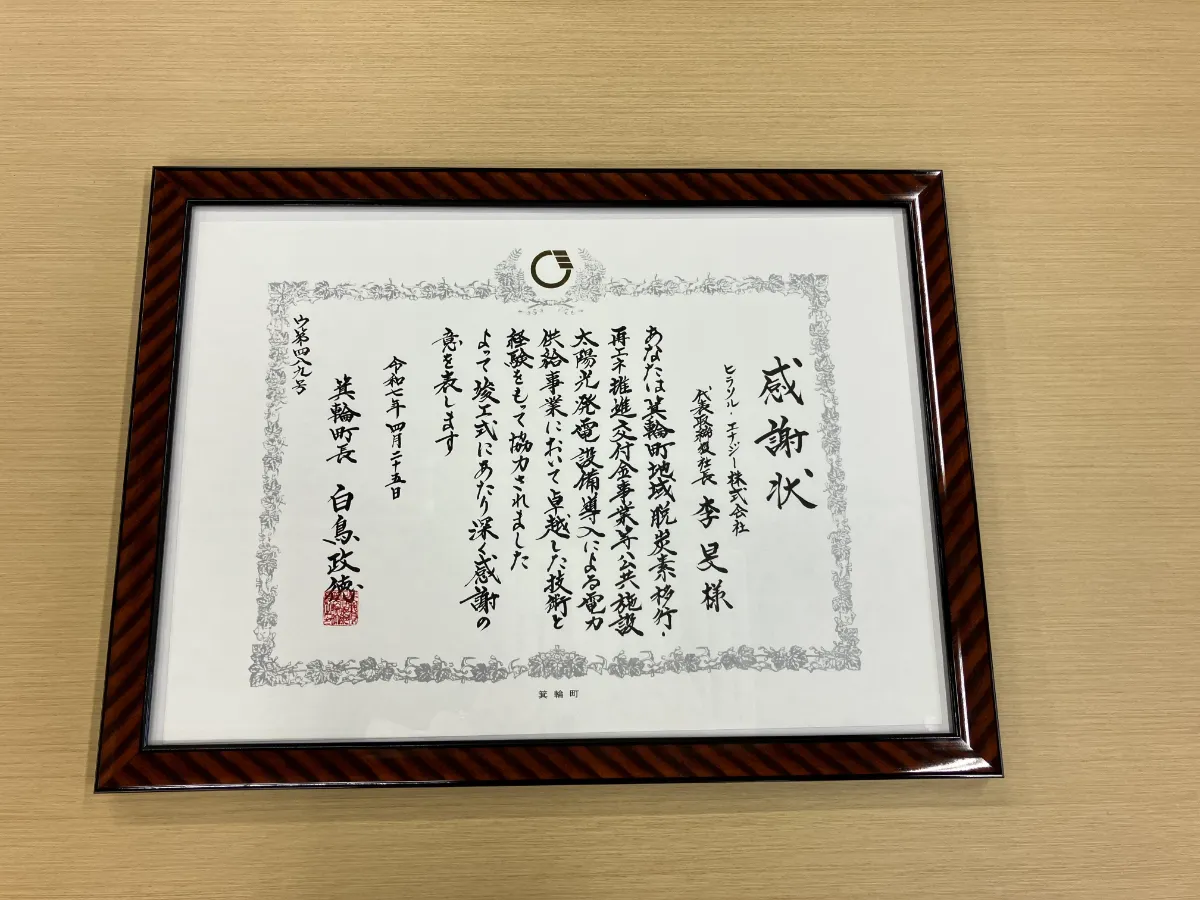 感謝状
ヒラソル・エナジー株式会社
代表取締役社長 李 旻 様
あなたは箕輪町地域脱炭素移行・
再エネ推進交付金事業等公共施設
太陽光発電設備導入による電力
供給事業において卓越した技術と
経験をもって協力されました
よって竣工式にあたり深く感謝の
意を表します
令和七年四月二十五日
箕輪町長 白鳥政徳
第四八九号
箕輪町